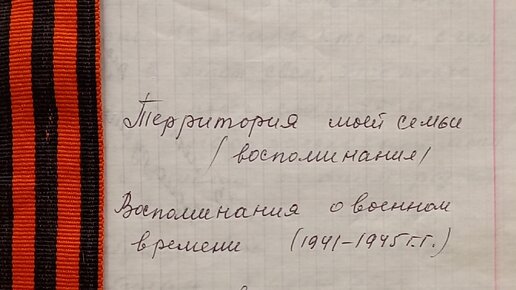 Территория моей семьи
(воспоминания)
Воспоминания о военном
времени (1941-1945 г.г.)